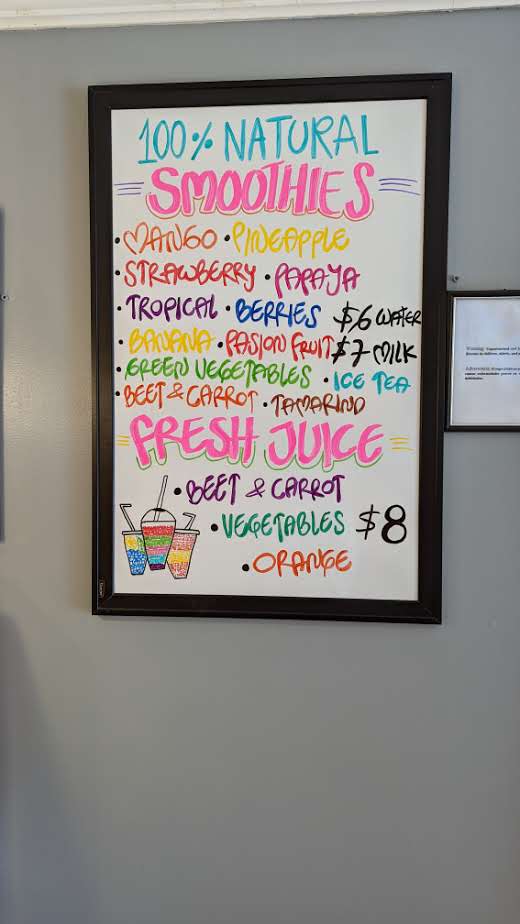 100% NATURAL
SMOOTHIES
• MANGO • PINEAPPLE
• STRAWBERRY • PAPAYA
• TROPICAL • BERRIES $6 WATER
• BANANA • PASION FRUIT $7 MILK
• GREEN VEGETABLES • ICE TEA
• BEET & CARROT • TAMARIND
FRESH JUICE
• BEET & CARROT
• VEGETABLES $8
• ORANGE